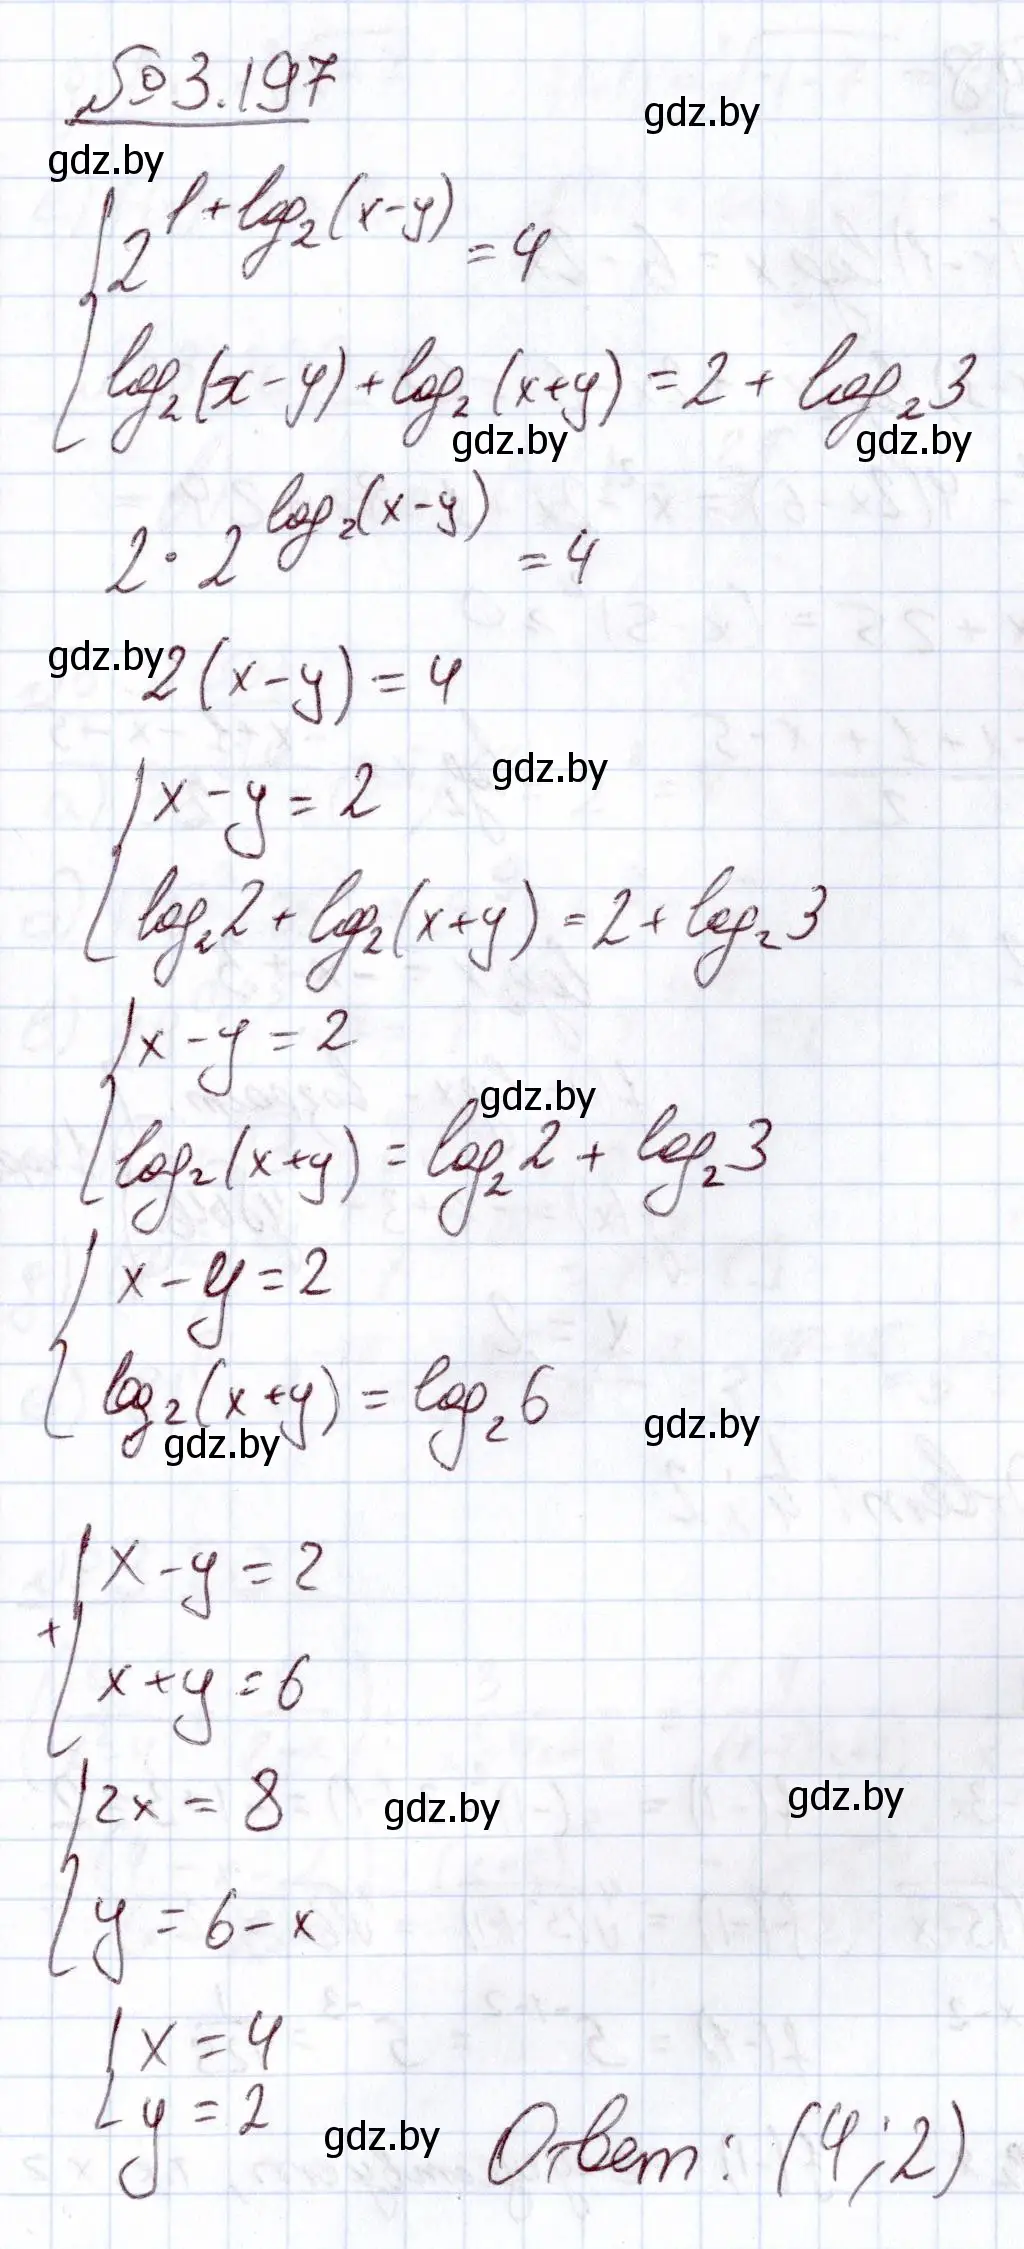 № 3.197
gdz.by
gdz.by
{ 2^(1+log₂(x-y)) = 4
log₂(x-y) + log₂(x+y) = 2 + log₂3
gdz.by gdz.by
2 · 2^(log₂(x-y)) = 4
gdz.by
2(x-y) = 4
gdz.by
{ x-y = 2
log₂2 + log₂(x+y) = 2 + log₂3
{ x-y = 2
gdz.by
log₂(x+y) = log₂2 + log₂3
{ x-y = 2
log₂(x+y) = log₂6
gdz.by gdz.by
+ { x-y = 2
x+y = 6
{ 2x = 8
gdz.by gdz.by
y = 6-x
{ x = 4
y = 2
gdz.by
Ответ: (4; 2)